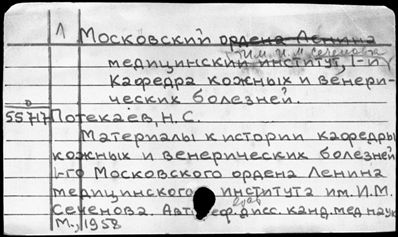 1 Московский ордена Ленина
им. И.М. Сеченова
медицинский институт, 1-й
Кафедра кожных и венери-
ческих болезней.
Потекаев, Н.С.
Материалы к истории кафедры
кожных и венерических болезней
1-го Московского ордена Ленина
медицинского института им. И.М.
Сеченова. Автореф. дисс. канд. мед наук
М., 1958